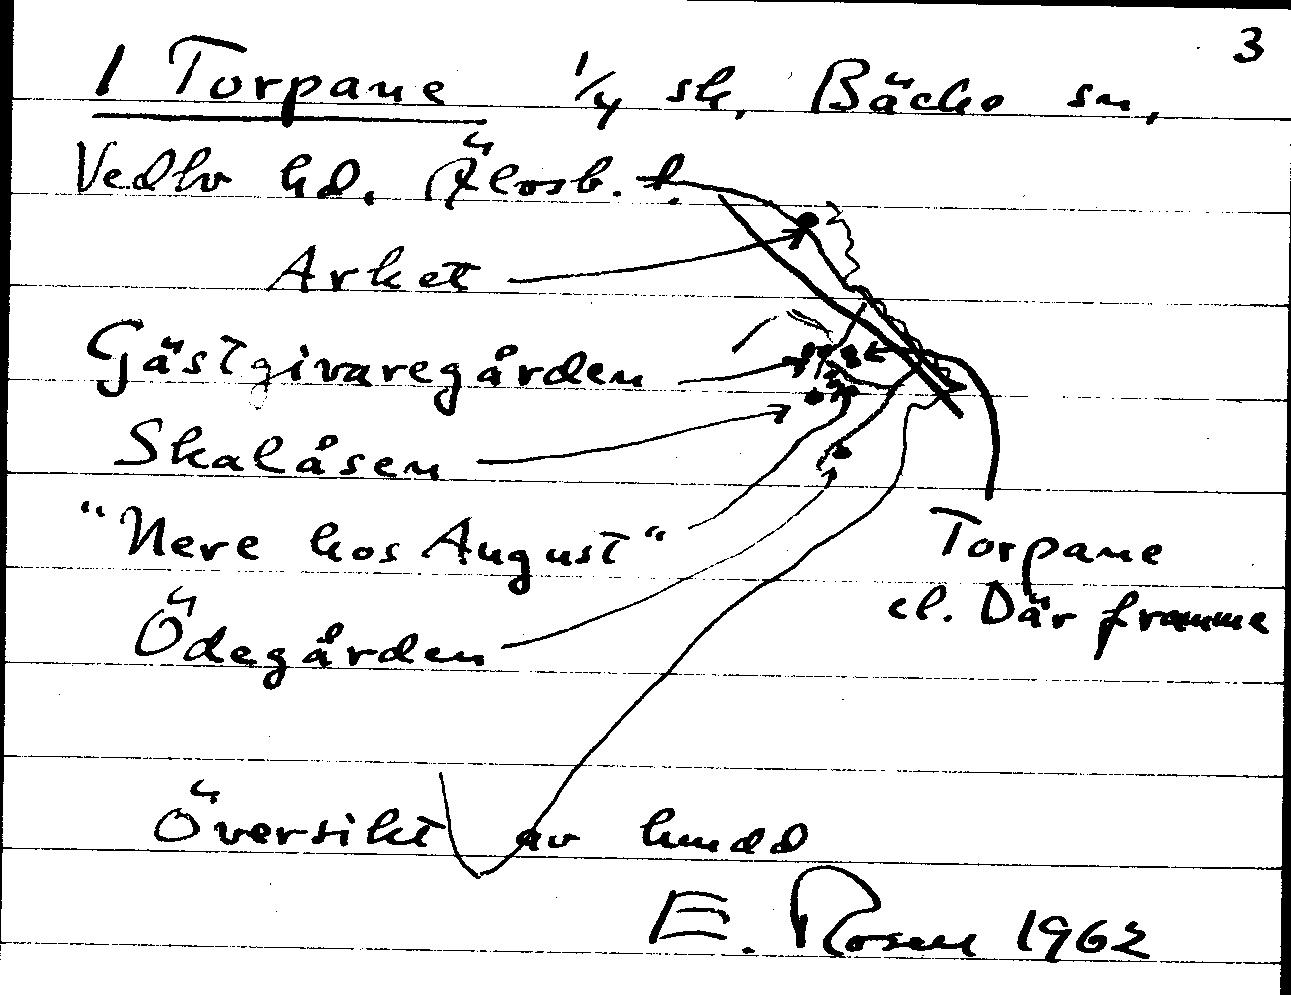 3
1 Torpane 1/4 sk, Bäcke sn,
Vedbo hd. Älvsb. l.
Arket
Gästgivaregården
Skalåsen
"Nere hos August"
Torpane
el. Där framme
Ödegården
Översikt av
E. Rosen 1962